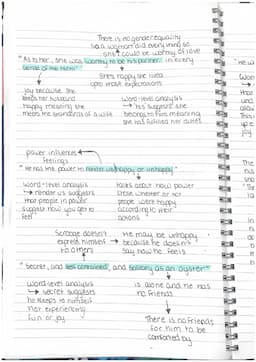 There is no gender equality
so a woman did everything so
she could be worthy of love
"As to her, she was worthy to be his partner in every
sense of the term"
She's happy she lived
up to most expectations
joy because she
keeps her husband
happy meaning she
meets the standards of a wife
Word-level analysis
→ "his" suggest she
belongs to him meaning
she has fulfilled her duties
power influences
feelings
"He has the power to render us happy or unhappy"
Word-level analysis
→ render us suggests
that people in power
suggest how you get to
feel
talks about how power
chose whether or not
people were happy
according to their
actions
Scrooge doesn't
express himself
to others
He may be unhappy
because he doesn't
say how he feels
"Secret, and self contained, and solitary as an oyster"
Word-level analysis
→ secret suggests
he keeps to himself
not experiencing
fun or joy
is alone and he has
no friends
There is no friends
for him to be
comforted by
"He w
Wor